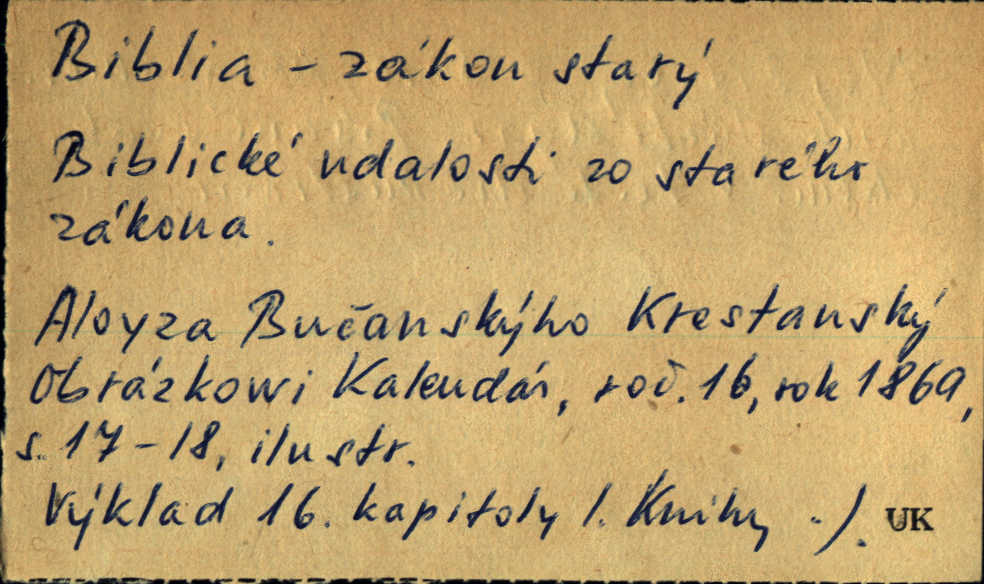 Biblia - zákon starý
Biblické udalosti zo starého
zákona.
Aloyza Bučanského Krestanský
Obrázkowi Kalendár, roč. 16, rok 1869,
s. 17-18, ilustr.
Výklad 16. kapitoly 1. Knihy ./. UK